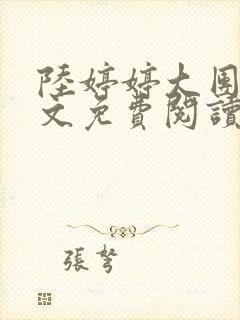 陸婷婷大團
文免費閱讀
張弩